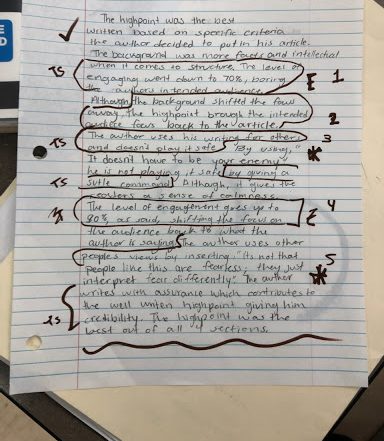 The highpoint was the best
written based on specific criteria
the author decided to put in his article.
The background was more facts and intellectual
TS when it comes to structure. The level of
engaging went down to 70%, boring E 1
the authors intended audience.
Although the background shifted the focus
away, the highpoint brough the intended 2
audience focus back to the article.
The author uses his writing for other 3
TS and doesn't play it safe. By using, "
It doesn't have to be your enemy"
he is not playing it safe by giving a
TS sutle command. Although, it gives the
readers a sense of calmness.
The level of engagement goes up to 4
90%, as said, shifting the focus on E
the audience back to what the
author is saying. The author uses other
peoples views by inserting "its not that 5
people like this are fearless; they just
interpret fear differently". The author
writes with assurance which contributes to
the well writen highpoint giving him
credibility. The highpoint was the
best out of all 4 sections.